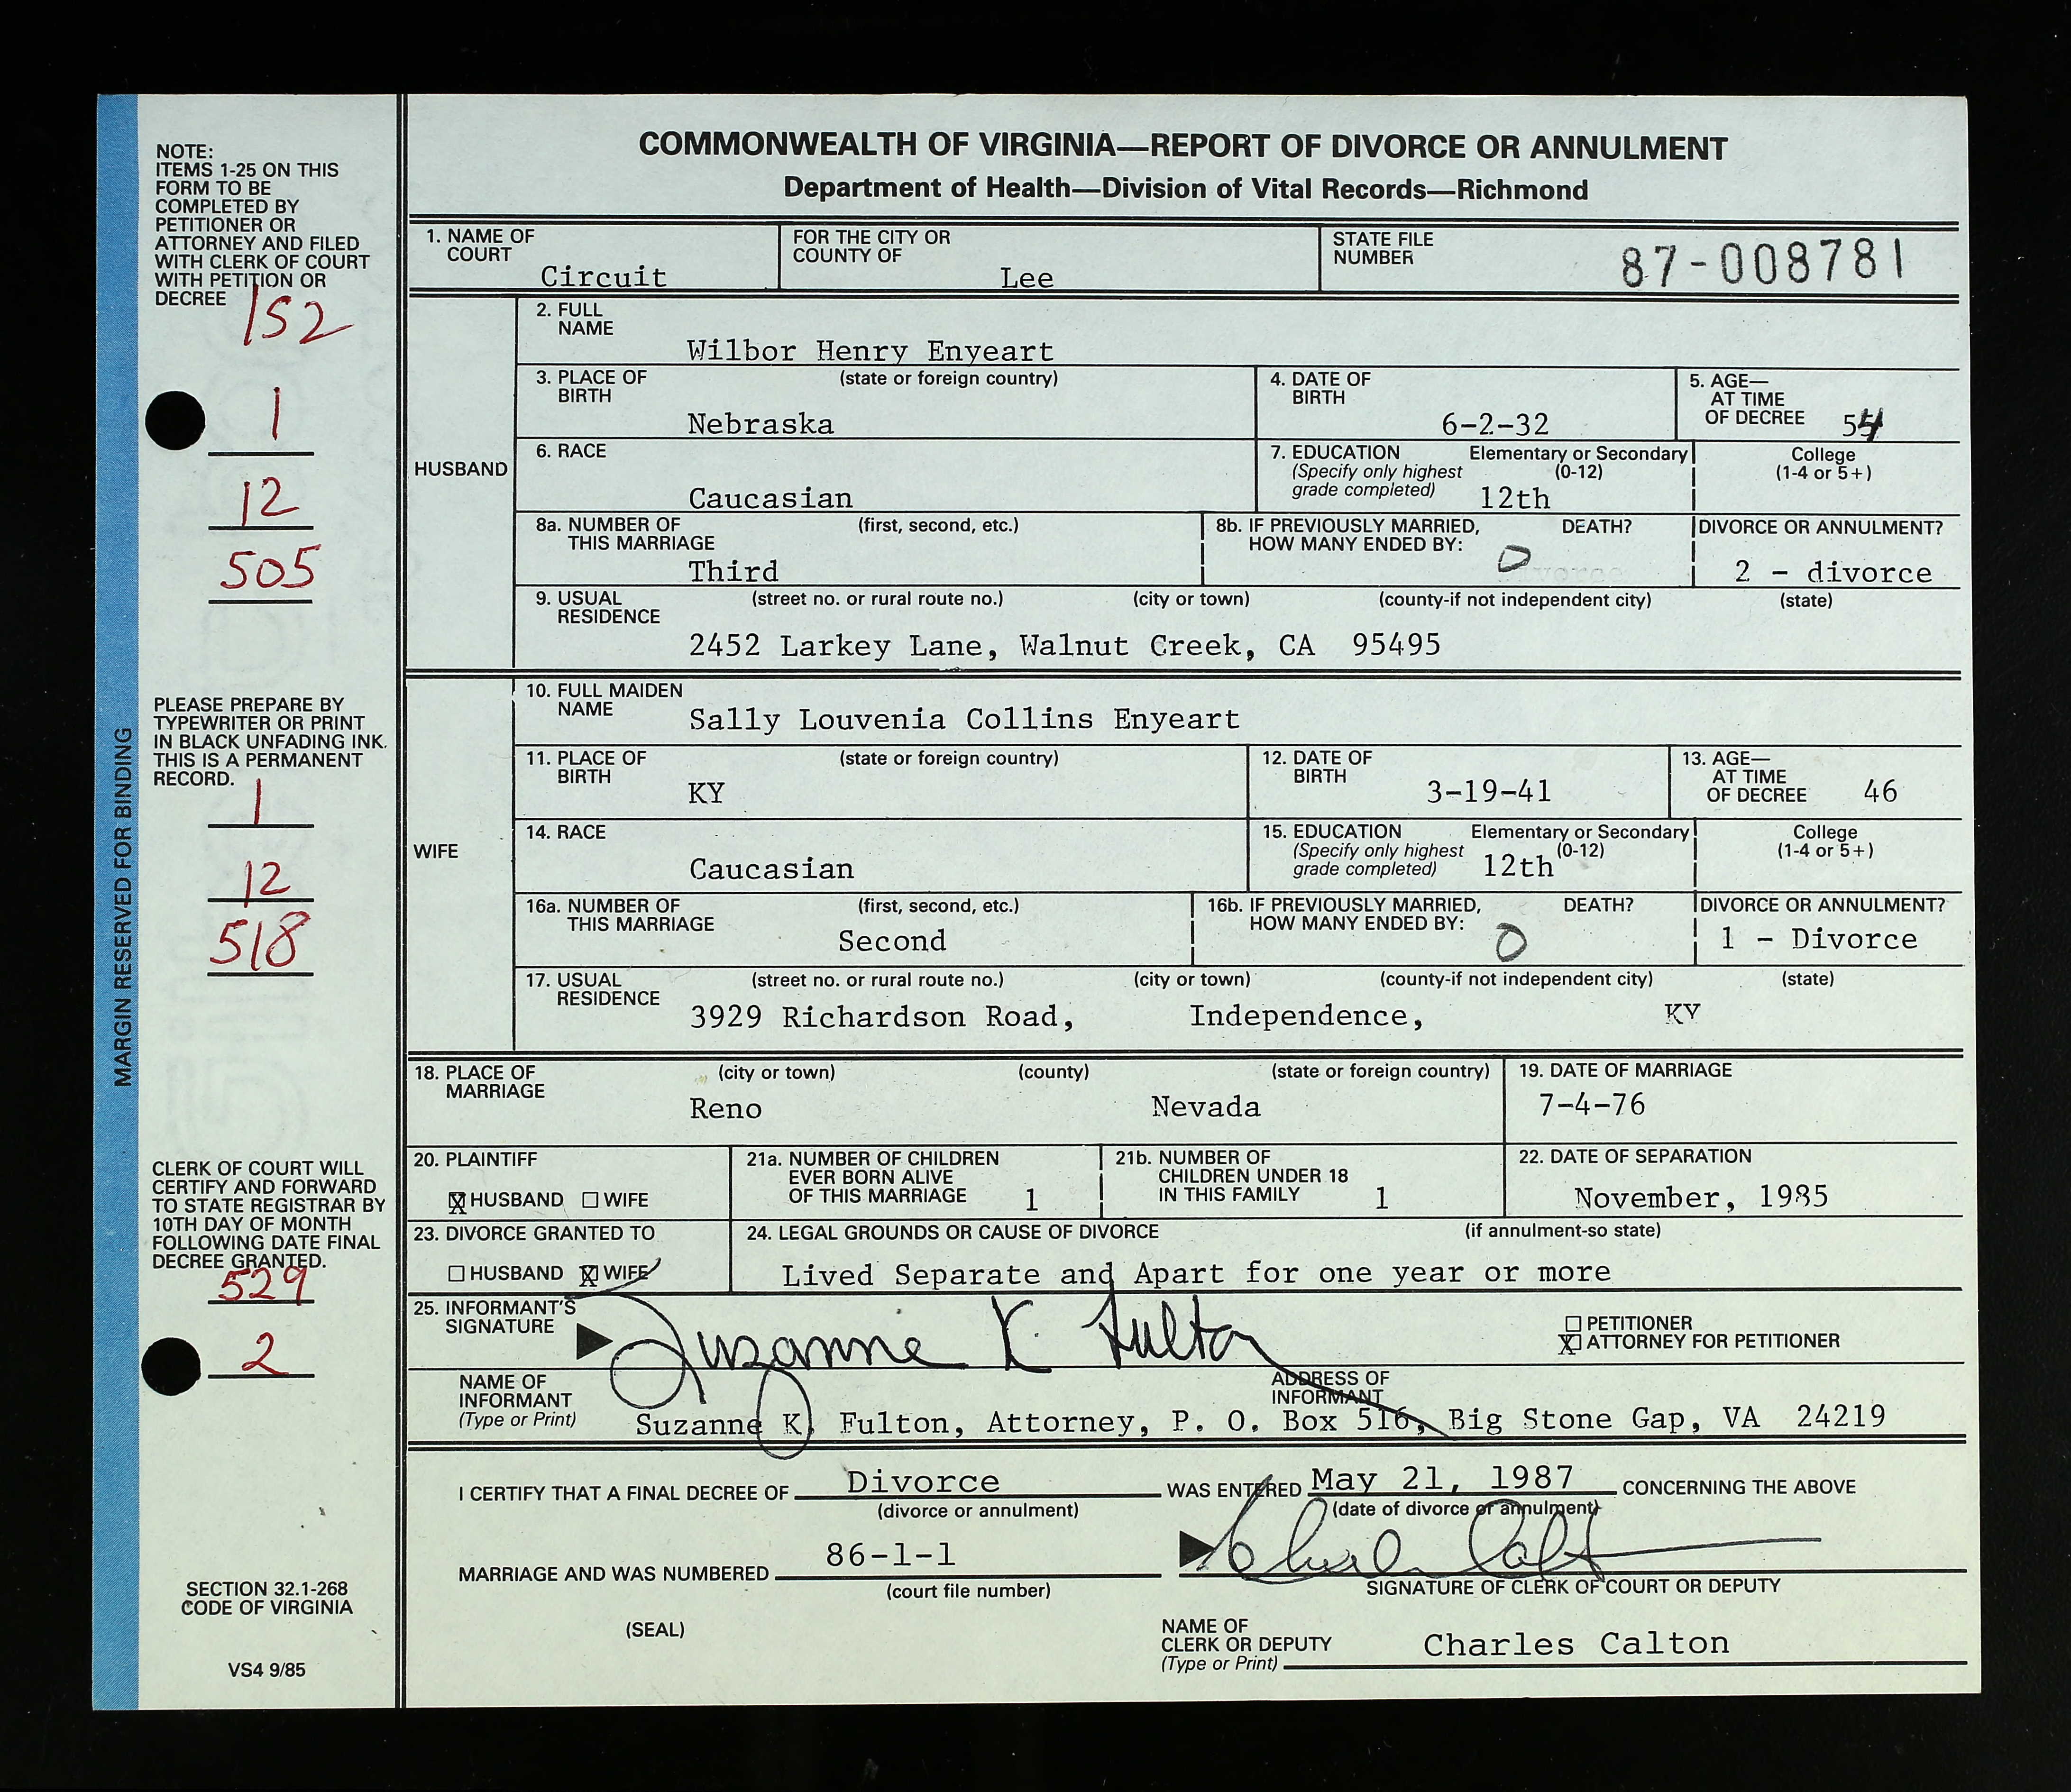 COMMONWEALTH OF VIRGINIA—REPORT OF DIVORCE OR ANNULMENT
Department of Health—Division of Vital Records—Richmond
NOTE:
ITEMS 1-25 ON THIS
FORM TO BE
COMPLETED BY
PETITIONER OR
ATTORNEY AND FILED
WITH CLERK OF COURT
WITH PETITION OR
DECREE
152
1
12
505
PLEASE PREPARE BY
TYPEWRITER OR PRINT
IN BLACK UNFADING INK.
THIS IS A PERMANENT
RECORD.
1
12
518
CLERK OF COURT WILL
CERTIFY AND FORWARD
TO STATE REGISTRAR BY
10TH DAY OF MONTH
FOLLOWING DATE FINAL
DECREE GRANTED.
529
2
SECTION 32.1-268
CODE OF VIRGINIA
VS4 9/85
MARGIN RESERVED FOR BINDING
1. NAME OF COURT Circuit
FOR THE CITY OR COUNTY OF Lee
STATE FILE NUMBER 87-008781
HUSBAND
2. FULL NAME Wilbor Henry Enyeart
3. PLACE OF BIRTH (state or foreign country) Nebraska
4. DATE OF BIRTH 6-2-32
5. AGE— AT TIME OF DECREE 54
6. RACE Caucasian
7. EDUCATION (Specify only highest grade completed) Elementary or Secondary (0-12) 12th College (1-4 or 5+)
8a. NUMBER OF THIS MARRIAGE (first, second, etc.) Third
8b. IF PREVIOUSLY MARRIED, HOW MANY ENDED BY: DEATH? 0 DIVORCE OR ANNULMENT? 2 - divorce
9. USUAL RESIDENCE (street no. or rural route no.) (city or town) (county-if not independent city) (state)
2452 Larkey Lane, Walnut Creek, CA 95495
WIFE
10. FULL MAIDEN NAME Sally Louvenia Collins Enyeart
11. PLACE OF BIRTH (state or foreign country) KY
12. DATE OF BIRTH 3-19-41
13. AGE— AT TIME OF DECREE 46
14. RACE Caucasian
15. EDUCATION (Specify only highest grade completed) Elementary or Secondary (0-12) 12th College (1-4 or 5+)
16a. NUMBER OF THIS MARRIAGE (first, second, etc.) Second
16b. IF PREVIOUSLY MARRIED, HOW MANY ENDED BY: DEATH? 0 DIVORCE OR ANNULMENT? 1 - Divorce
17. USUAL RESIDENCE (street no. or rural route no.) (city or town) (county-if not independent city) (state)
3929 Richardson Road, Independence, KY
18. PLACE OF MARRIAGE (city or town) (county) (state or foreign country)
Reno Nevada
19. DATE OF MARRIAGE 7-4-76
20. PLAINTIFF X HUSBAND WIFE
21a. NUMBER OF CHILDREN EVER BORN ALIVE OF THIS MARRIAGE 1
21b. NUMBER OF CHILDREN UNDER 18 IN THIS FAMILY 1
22. DATE OF SEPARATION November, 1985
23. DIVORCE GRANTED TO HUSBAND X WIFE
24. LEGAL GROUNDS OR CAUSE OF DIVORCE (if annulment-so state)
Lived Separate and Apart for one year or more
25. INFORMANT'S SIGNATURE Suzanne K. Fulton
PETITIONER
X ATTORNEY FOR PETITIONER
NAME OF INFORMANT (Type or Print) ADDRESS OF INFORMANT
Suzanne K. Fulton, Attorney, P. O. Box 516, Big Stone Gap, VA 24219
I CERTIFY THAT A FINAL DECREE OF Divorce WAS ENTERED May 21, 1987 CONCERNING THE ABOVE
(divorce or annulment) (date of divorce or annulment)
MARRIAGE AND WAS NUMBERED 86-1-1
(court file number)
Charles Calton
SIGNATURE OF CLERK OF COURT OR DEPUTY
(SEAL)
NAME OF CLERK OR DEPUTY (Type or Print) Charles Calton